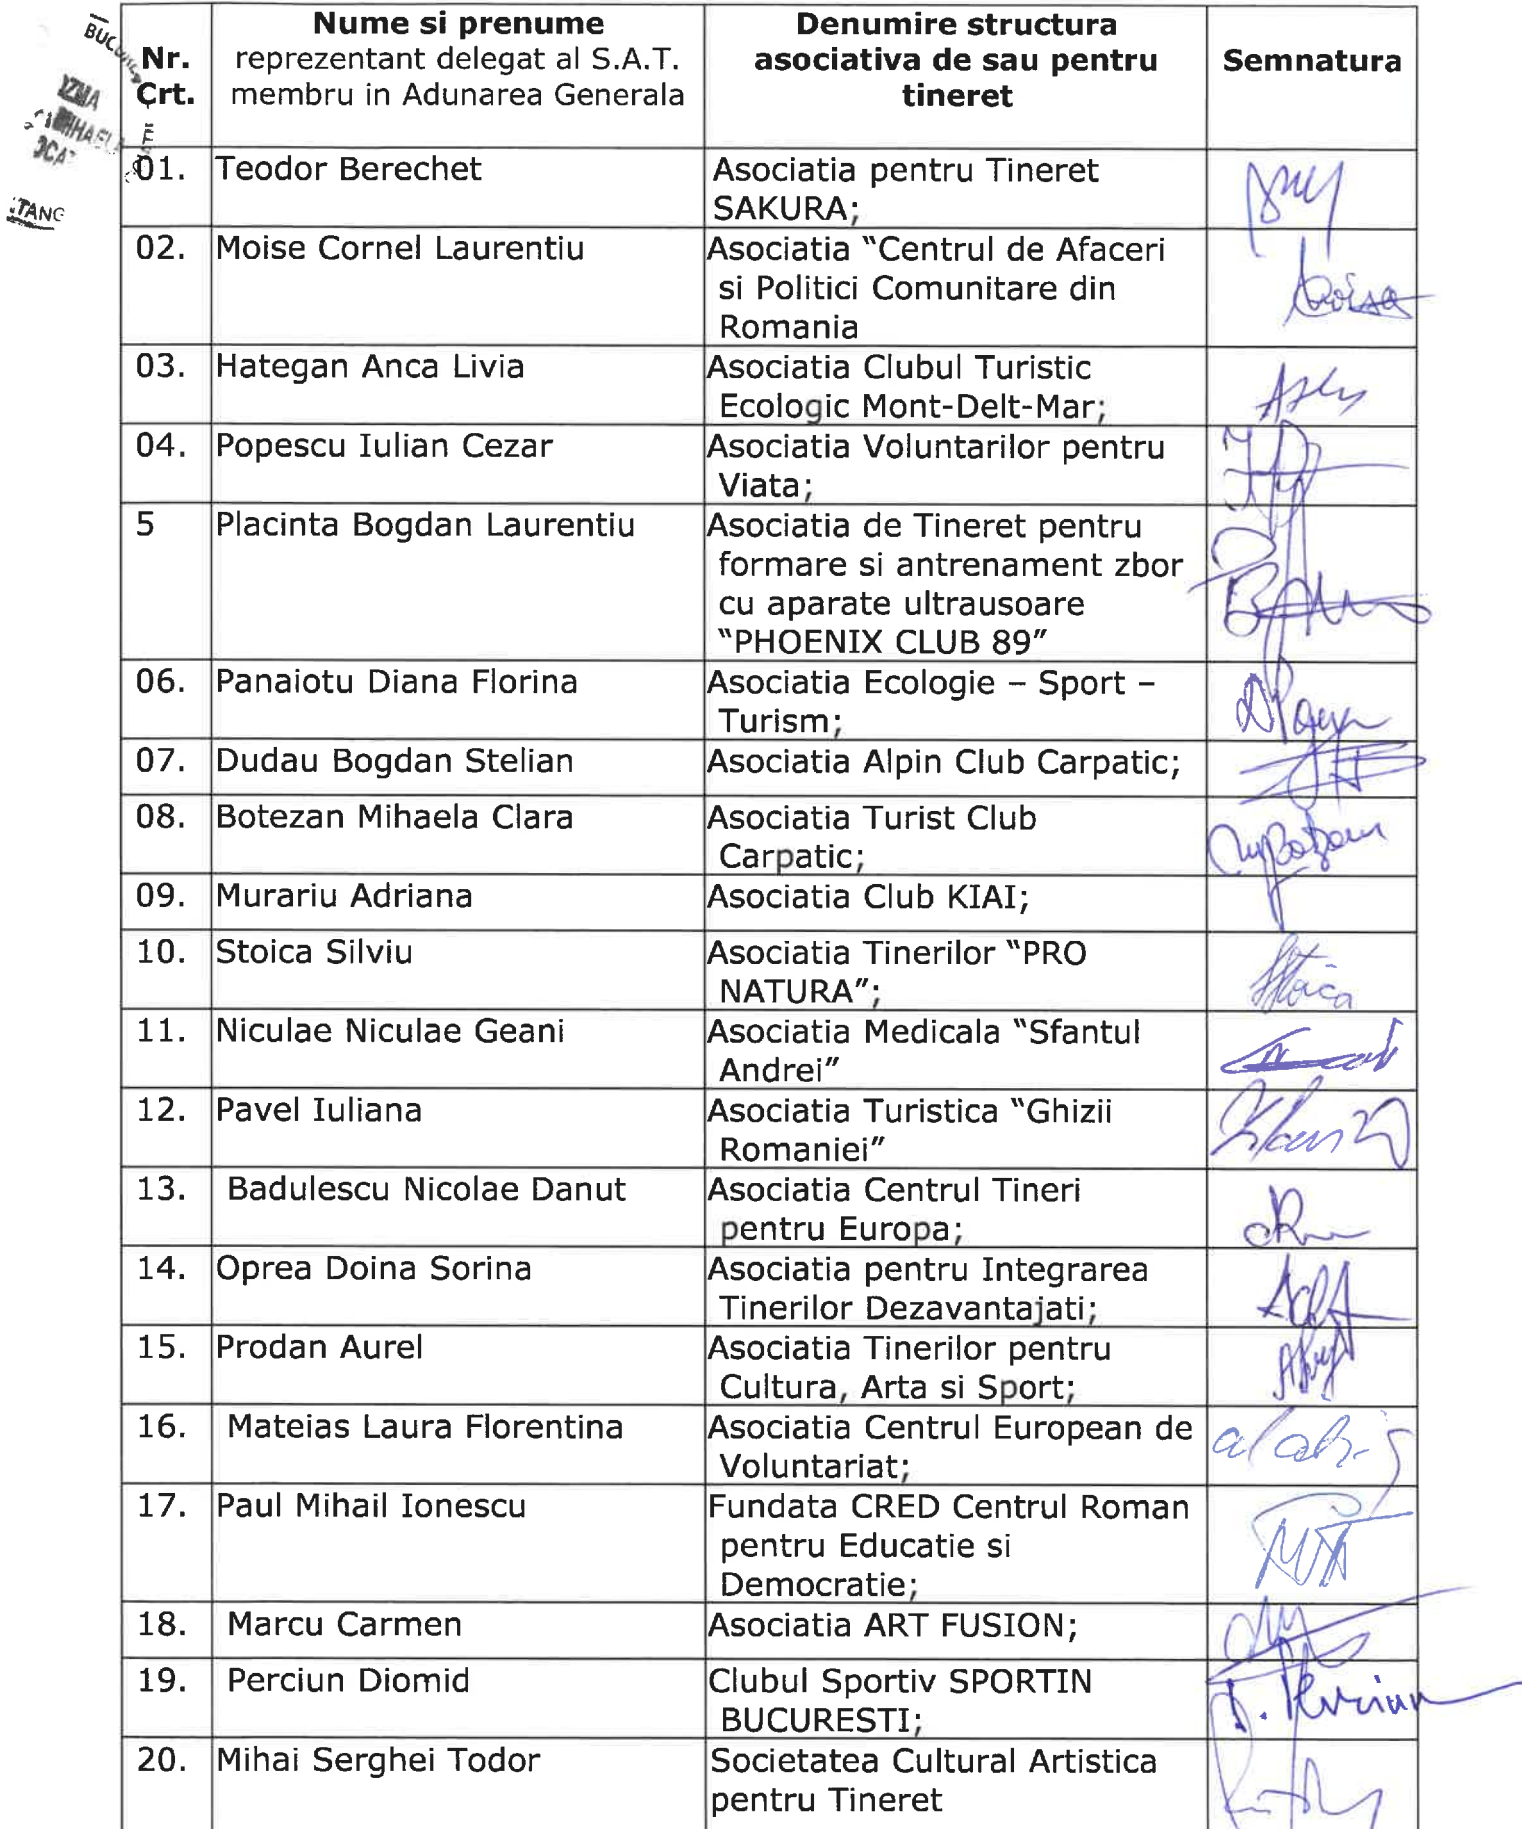 Nr.
Crt.
Nume si prenume
reprezentant delegat al S.A.T.
membru in Adunarea Generala
Denumire structura
asociativa de sau pentru
tineret
Semnatura
01. Teodor Berechet Asociatia pentru Tineret
SAKURA;
02. Moise Cornel Laurentiu Asociatia "Centrul de Afaceri
si Politici Comunitare din
Romania
03. Hategan Anca Livia Asociatia Clubul Turistic
Ecologic Mont-Delt-Mar;
04. Popescu Iulian Cezar Asociatia Voluntarilor pentru
Viata;
5 Placinta Bogdan Laurentiu Asociatia de Tineret pentru
formare si antrenament zbor
cu aparate ultrausoare
"PHOENIX CLUB 89"
06. Panaiotu Diana Florina Asociatia Ecologie – Sport –
Turism;
07. Dudau Bogdan Stelian Asociatia Alpin Club Carpatic;
08. Botezan Mihaela Clara Asociatia Turist Club
Carpatic;
09. Murariu Adriana Asociatia Club KIAI;
10. Stoica Silviu Asociatia Tinerilor "PRO
NATURA";
Stoica
11. Niculae Niculae Geani Asociatia Medicala "Sfantul
Andrei"
12. Pavel Iuliana Asociatia Turistica "Ghizii
Romaniei"
13. Badulescu Nicolae Danut Asociatia Centrul Tineri
pentru Europa;
14. Oprea Doina Sorina Asociatia pentru Integrarea
Tinerilor Dezavantajati;
15. Prodan Aurel Asociatia Tinerilor pentru
Cultura, Arta si Sport;
16. Mateias Laura Florentina Asociatia Centrul European de
Voluntariat;
17. Paul Mihail Ionescu Fundata CRED Centrul Roman
pentru Educatie si
Democratie;
18. Marcu Carmen Asociatia ART FUSION;
19. Perciun Diomid Clubul Sportiv SPORTIN
BUCURESTI;
D. Perciun
20. Mihai Serghei Todor Societatea Cultural Artistica
pentru Tineret